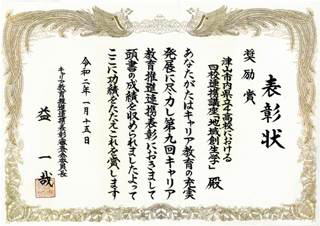 表彰状
奨励賞
津山市内県立千高校における
四校連携講座「地域創生学」 殿
あなたがたはキャリア教育の充実
発展に尽力し第九回キャリア
教育推進連携表彰におきまして
頭書の成績を収められましたよって
ここに功績をたたえこれを賞します
令和二年一月十五日
キャリア教育推進連携表彰審査委員長
益 一哉